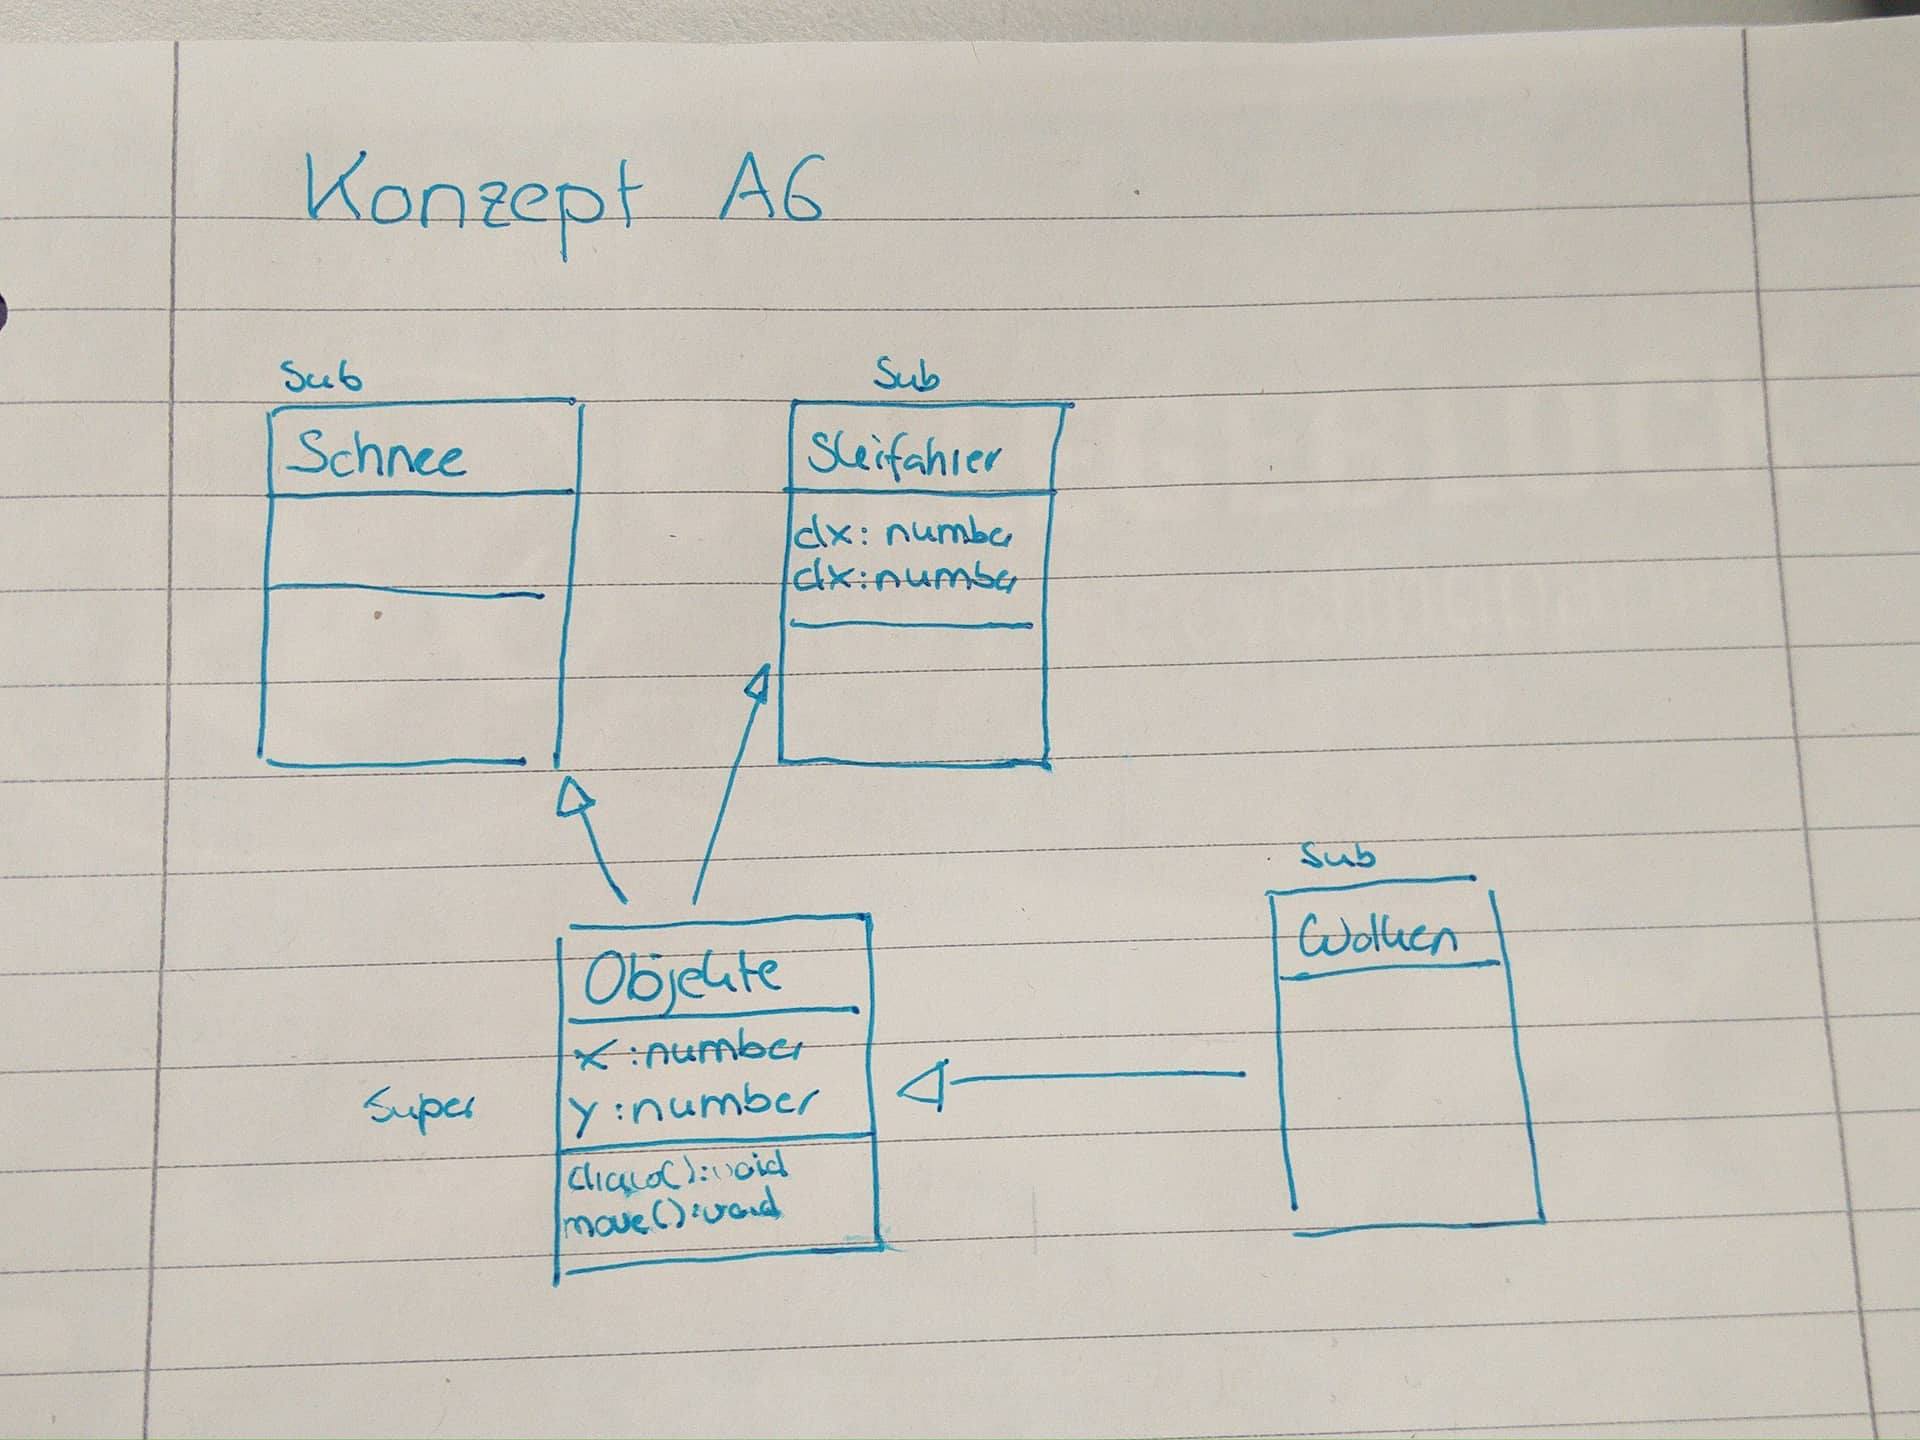 Konzept A6
Sub
Schnee
Sub
Skifahrer
dx: number
dx:number
Sub
Wolken
Super
Objekte
x :number
y :number
draw():void
move():void